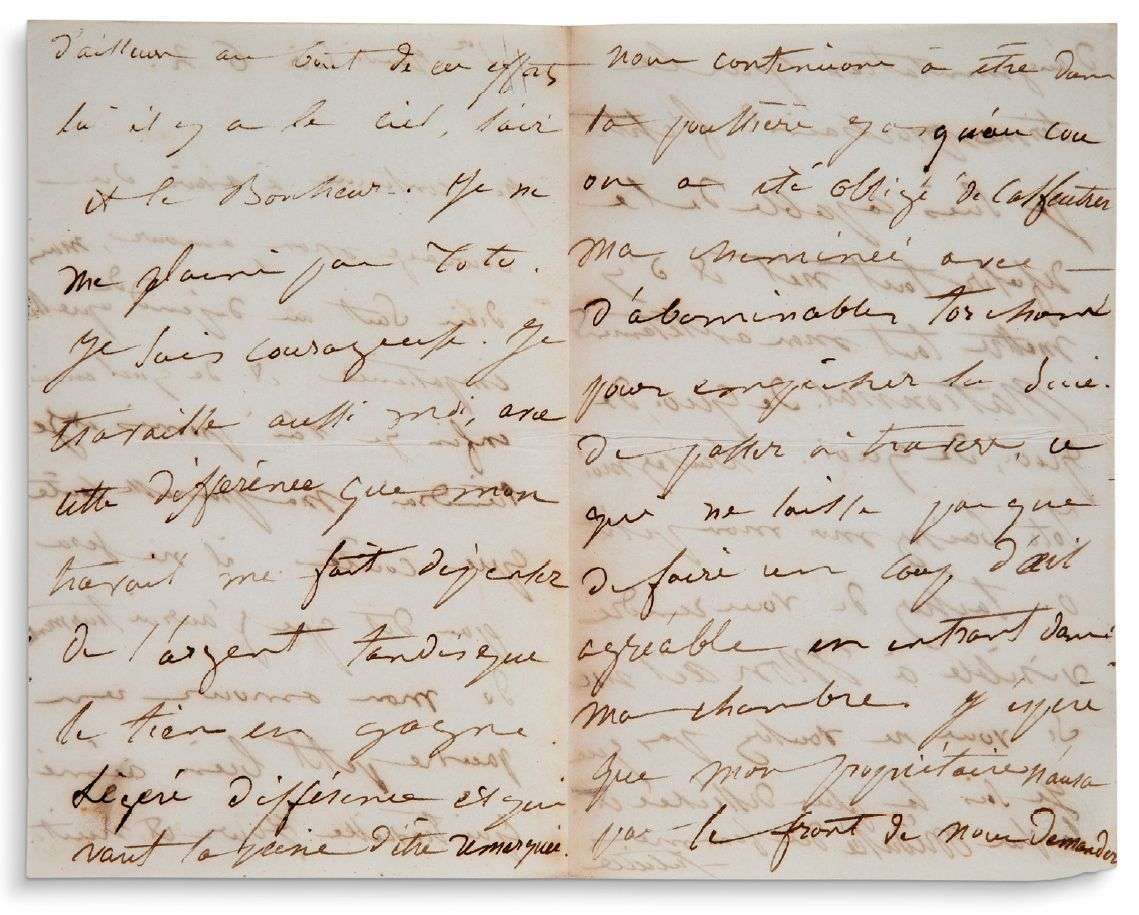 d'ailleur au bout de ces efforts
là il y a le ciel, l'air
et le Bonheur. Je ne
me plains pas Toto.
Je suis courageuse. Je
travaille aussi moi, avec
cette différence que mon
travail me fait dépenser
de l'argent tandisque
le tien en gagne.
Légère différence et qui
vaut la peine d'être remarquée.
nous continuons à être dans
la poussière
on a été obligé de calfeutrer
ma cheminée avec
d'abominables torchons
pour empêcher la suie
de passer à travers, ce
qui ne laisse pas que
de faire un coup d'œil
agréable en entrant dans
ma chambre. J'espère
que mon propriétaire n'aura
pas le front de nous demander